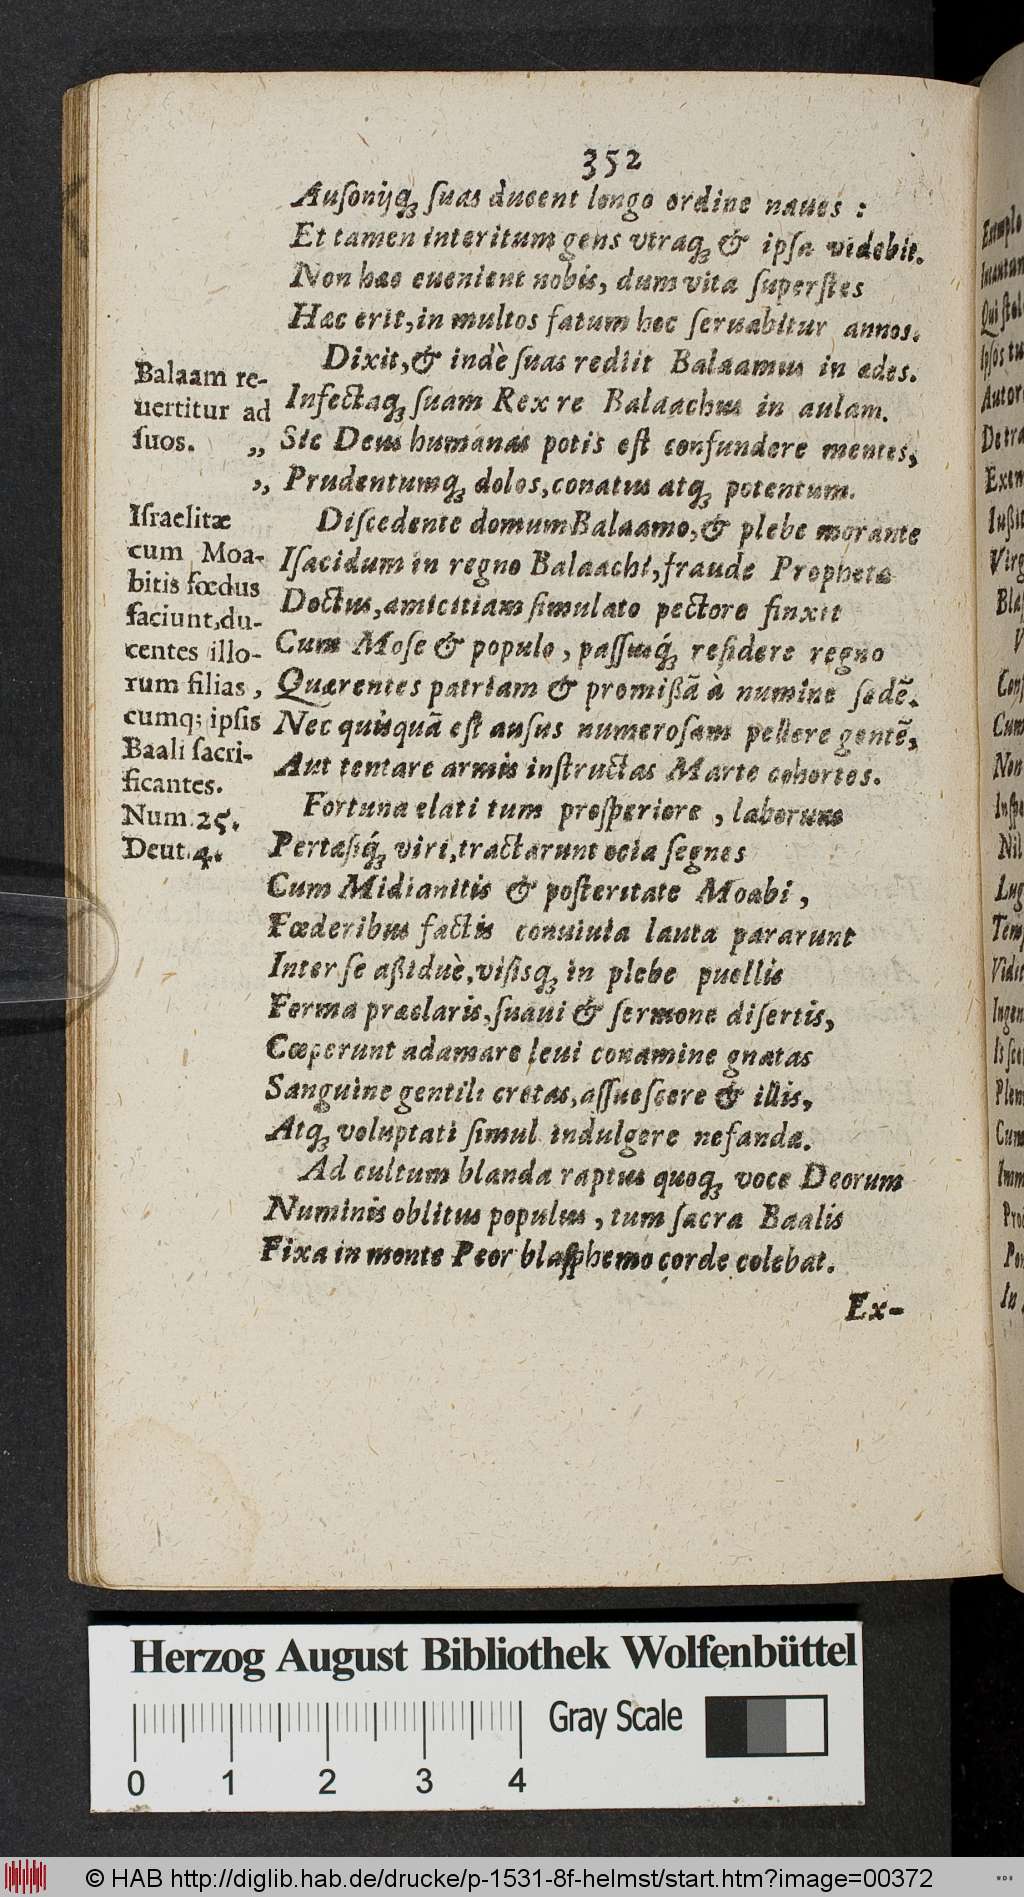 352
Auſonijq́ꝫ ſuas ducent longo ordine naues :
Et tamen interitum gens vtraqꝫ & ipſa videbit.
Non hæc euenient nobis, dum vita ſuperſtes
Hæc erit, in multos fatum hoc ſeruabitur annos.
Dixit, & indè ſuas rediit Balaamus in ædes.
Infectaqꝫ ſuam Rex re Balaachus in aulam.
„ Sic Deus humanas potis eſt confundere mentes,
„ Prudentumqꝫ dolos, conatus atqꝫ potentum.
Balaam re-
uertitur ad
ſuos.
Diſcedente domum Balaamo, & plebe morante
Iſacidum in regno Balaachi, fraude Prophetæ
Doctus, amicitiam ſimulato pectore finxit
Cum Moſe & populo, paſſusq́ꝫ reſidere regno
Quærentes patriam & promißã à numine ſedẽ.
Nec quiſquã eſt auſus numeroſam pellere gentẽ,
Aut tentare armis inſtructas Marte cohortes.
Iſraelitæ
cum Moa-
bitis fœdus
faciunt, du-
centes illo-
rum filias,
cumq; ipſis
Baali ſacri-
ficantes.
Num. 25.
Deut. 4.
Fortuna elati tum proſperiore, laborum
Pertæſiq́ꝫ viri, tractarunt ocia ſegnes
Cum Midianitis & poſteritate Moabi,
Fœderibus factis conuiuia lauta pararunt
Inter ſe aßiduè, viſisqꝫ in plebe puellis
Forma præclaris, ſuaui & ſermone diſertis,
Cœperunt adamare leui conamine gnatas
Sanguine gentili cretas, aſſueſcere & illis,
Atqꝫ voluptati ſimul indulgere nefandæ.
Ad cultum blanda raptus quoqꝫ voce Deorum
Numinis oblitus populus, tum ſacra Baalis
Fixa in monte Peor blaſphemo corde colebat.
Ex-
Herzog August Bibliothek Wolfenbüttel
Gray Scale
0 1 2 3 4
© HAB http://diglib.hab.de/drucke/p-1531-8f-helmst/start.htm?image=00372